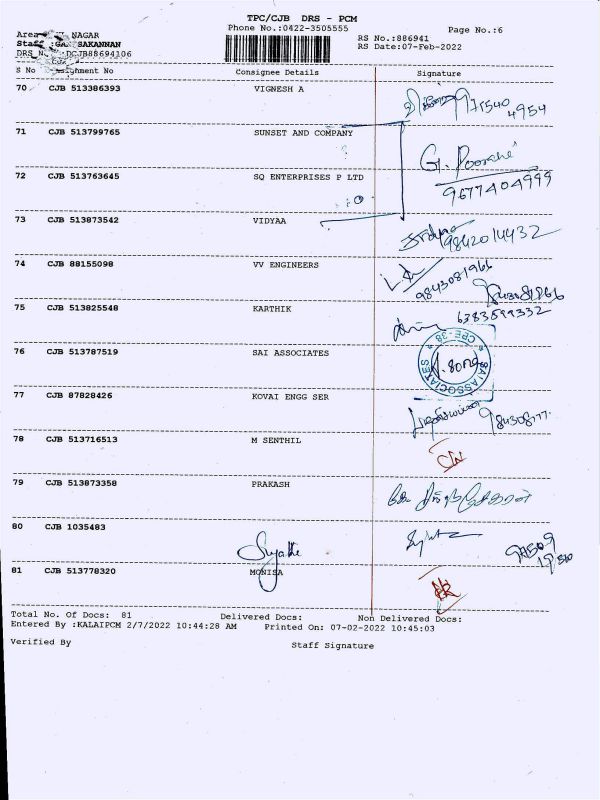 TPC/CJB DRS - PCM
Phone No.:0422-3505555
Page No.:6
Area NAGAR
RS No.:886941
Staff SAKANNAN
RS Date:07-Feb-2022
DRS N DCJB88694106
S No ignment No Consignee Details Signature
70 CJB 513386393 VIGNESH A
4954
71 CJB 513799765 SUNSET AND COMPANY
G. Poorani
72 CJB 513763645 SQ ENTERPRISES P LTD
9677404999
73 CJB 513873542 VIDYAA
9842014432
74 CJB 88155098 VV ENGINEERS
9843081966
75 CJB 513825548 KARTHIK
6383599332
76 CJB 513787519 SAI ASSOCIATES
SAI ASSOCIATES * CBE-38 *
77 CJB 87828426 KOVAI ENGG SER
78 CJB 513716513 M SENTHIL
79 CJB 513873358 PRAKASH
80 CJB 1035483
81 CJB 513778320 MONISA
Total No. Of Docs: 81 Delivered Docs: Non Delivered Docs:
Entered By :KALAIPCM 2/7/2022 10:44:28 AM Printed On: 07-02-2022 10:45:03
Verified By Staff Signature